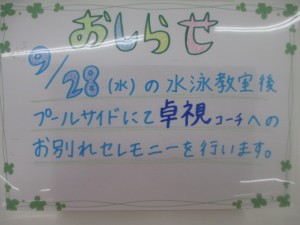 おしらせ
9/28(水)の水泳教室後
プールサイドにて卓視コーチへの
お別れセレモニーを行います。